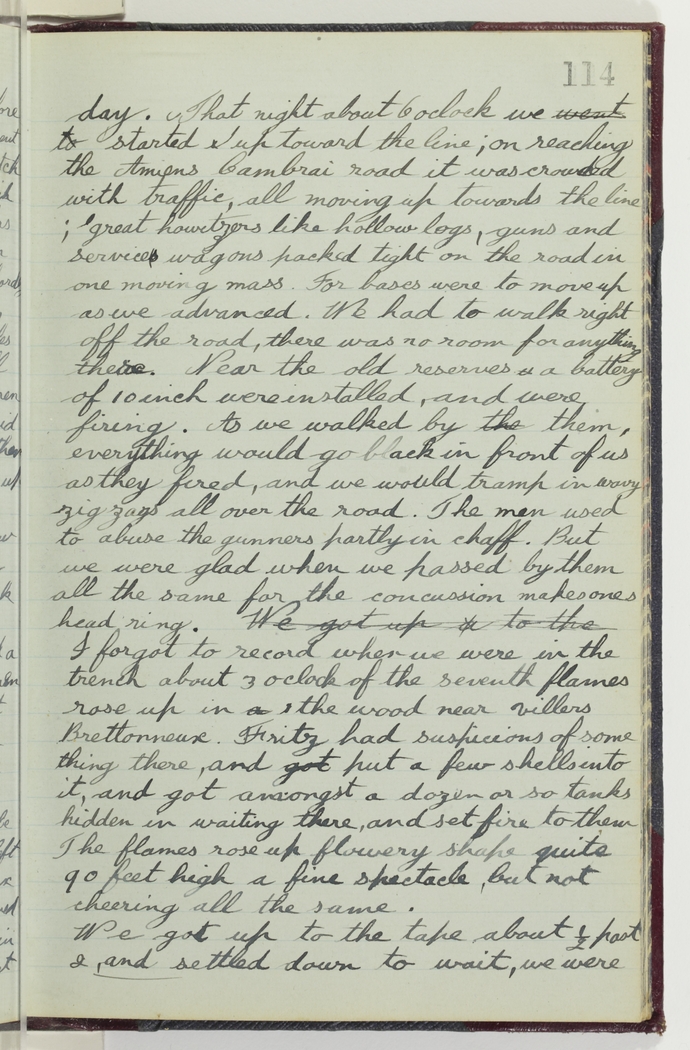 114
day. That night about 6 oclock we went
to started up toward the line; on reaching
the Amiens Cambrai road it was crowded
with traffic, all moving up towards the line
; great howitzers like hollow logs, guns and
service wagons packed tight on the road in
one moving mass. For bases were to move up
as we advanced. We had to walk right
off the road, there was no room for anything
there. Near the old reserves a battery
of 10 inch were installed, and were
firing. As we walked by the them,
everything would go black in front of us
as they fired, and we would tramp in wavy
zig zags all over the road. The men used
to abuse the gunners partly in chaff. But
we were glad when we passed by them
all the same for the concussion makes ones
head ring. We got up to the
I forgot to record when we were in the
trench about 3 oclock of the seventh flames
rose up in a the wood near villers
Brettonneux. Fritz had suspicions of some
thing there, and got put a few shells into
it, and got amongst a dozen or so tanks
hidden in waiting there, and set fire to them
The flames rose up flowery shape quite
90 feet high a fine spectacle, but not
cheering all the same.
We got up to the tape about ½ past
2, and settled down to wait, we were